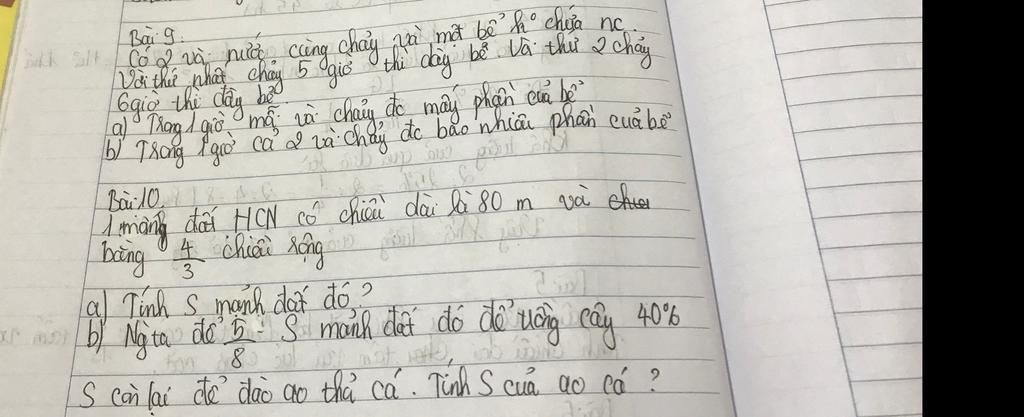 Bài 9:
Có 2 vòi nước cùng chảy vài một bể ko chứa nc.
Vòi thứ nhất chảy 5 giờ thì đầy bể. Vòi thứ 2 chảy
6 giờ thì đầy bể
a) Trong 1 giờ mỗi vòi chảy đc mấy phần của bể
b) Trong 1 giờ cả 2 vòi chảy đc bao nhiêu phần của bể
Bài 10.
1 mảng đất HCN có chiều dài là 80 m và
bằng 4/3 chiều rộng
a) Tính S mảnh đất đó?
b) Ng ta để 5/8 S mảnh đất đó để trồng cây 40%
S còn lại để đào ao thả cá. Tính S của ao cá?